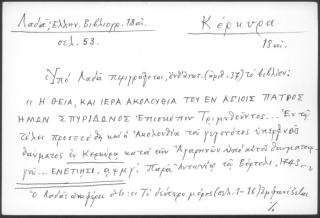 Λαδᾶ; Ἑλλην. Βιβλιογρ. 18 αἰ.
Κέρκυρα
σελ. 53.
18 αἰ.
Ὑπό Λαδᾶ περιγράφεται, (ἀριθ. 37) τό βιβλίον:
«Η ΘΕΙΑ, ΚΑΙ ΙΕΡΑ ΑΚΟΛΟΥΘΙΑ ΤΟΥ ΕΝ ΑΓΙΟΙΣ ΠΑΤΡΟΣ
ΗΜΩΝ ΣΠΥΡΙΔΩΝΟΣ Ἐπισκόπου Τριμυθοῦντος... Ἐν τῷ
τέλει προσετέθη καί ἡ Ἀκολουθία τοῦ γεγονότος ὑπερφυοῦς
θαύματος ἐν Κερκύρᾳ κατά τῶν Ἀγαρηνῶν
... ΕΝΕΤΙΗΣΙ. αψμγ΄. Παρά Ἀντωνίῳ τῷ Βόρτολι. 1743...»
Ὁ Λαδᾶς ἀναφέρει ὅτι: «Τό δεύτερο μέρος (σελ. 1-16) ἐμφανίζεται
./.